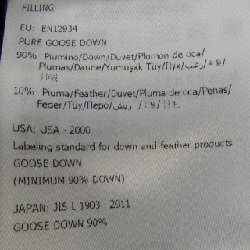 FILLING
EU: EN12934
PURE GOOSE DOWN
90% Plumino/Down/Duvet/Plumon de oca/
Plumas/Daune/Yumuşak Tüy/Пух/زغب/
10% Piuma/Feather/Duvet/Pluma de oca/Penas/
Feder/Tüy/Перо/ريش/
USA: USA - 2000
Labeling standard for down and feather products
GOOSE DOWN
(MINIMUM 90% DOWN)
JAPAN: JIS L 1903 - 2011
GOOSE DOWN 90%